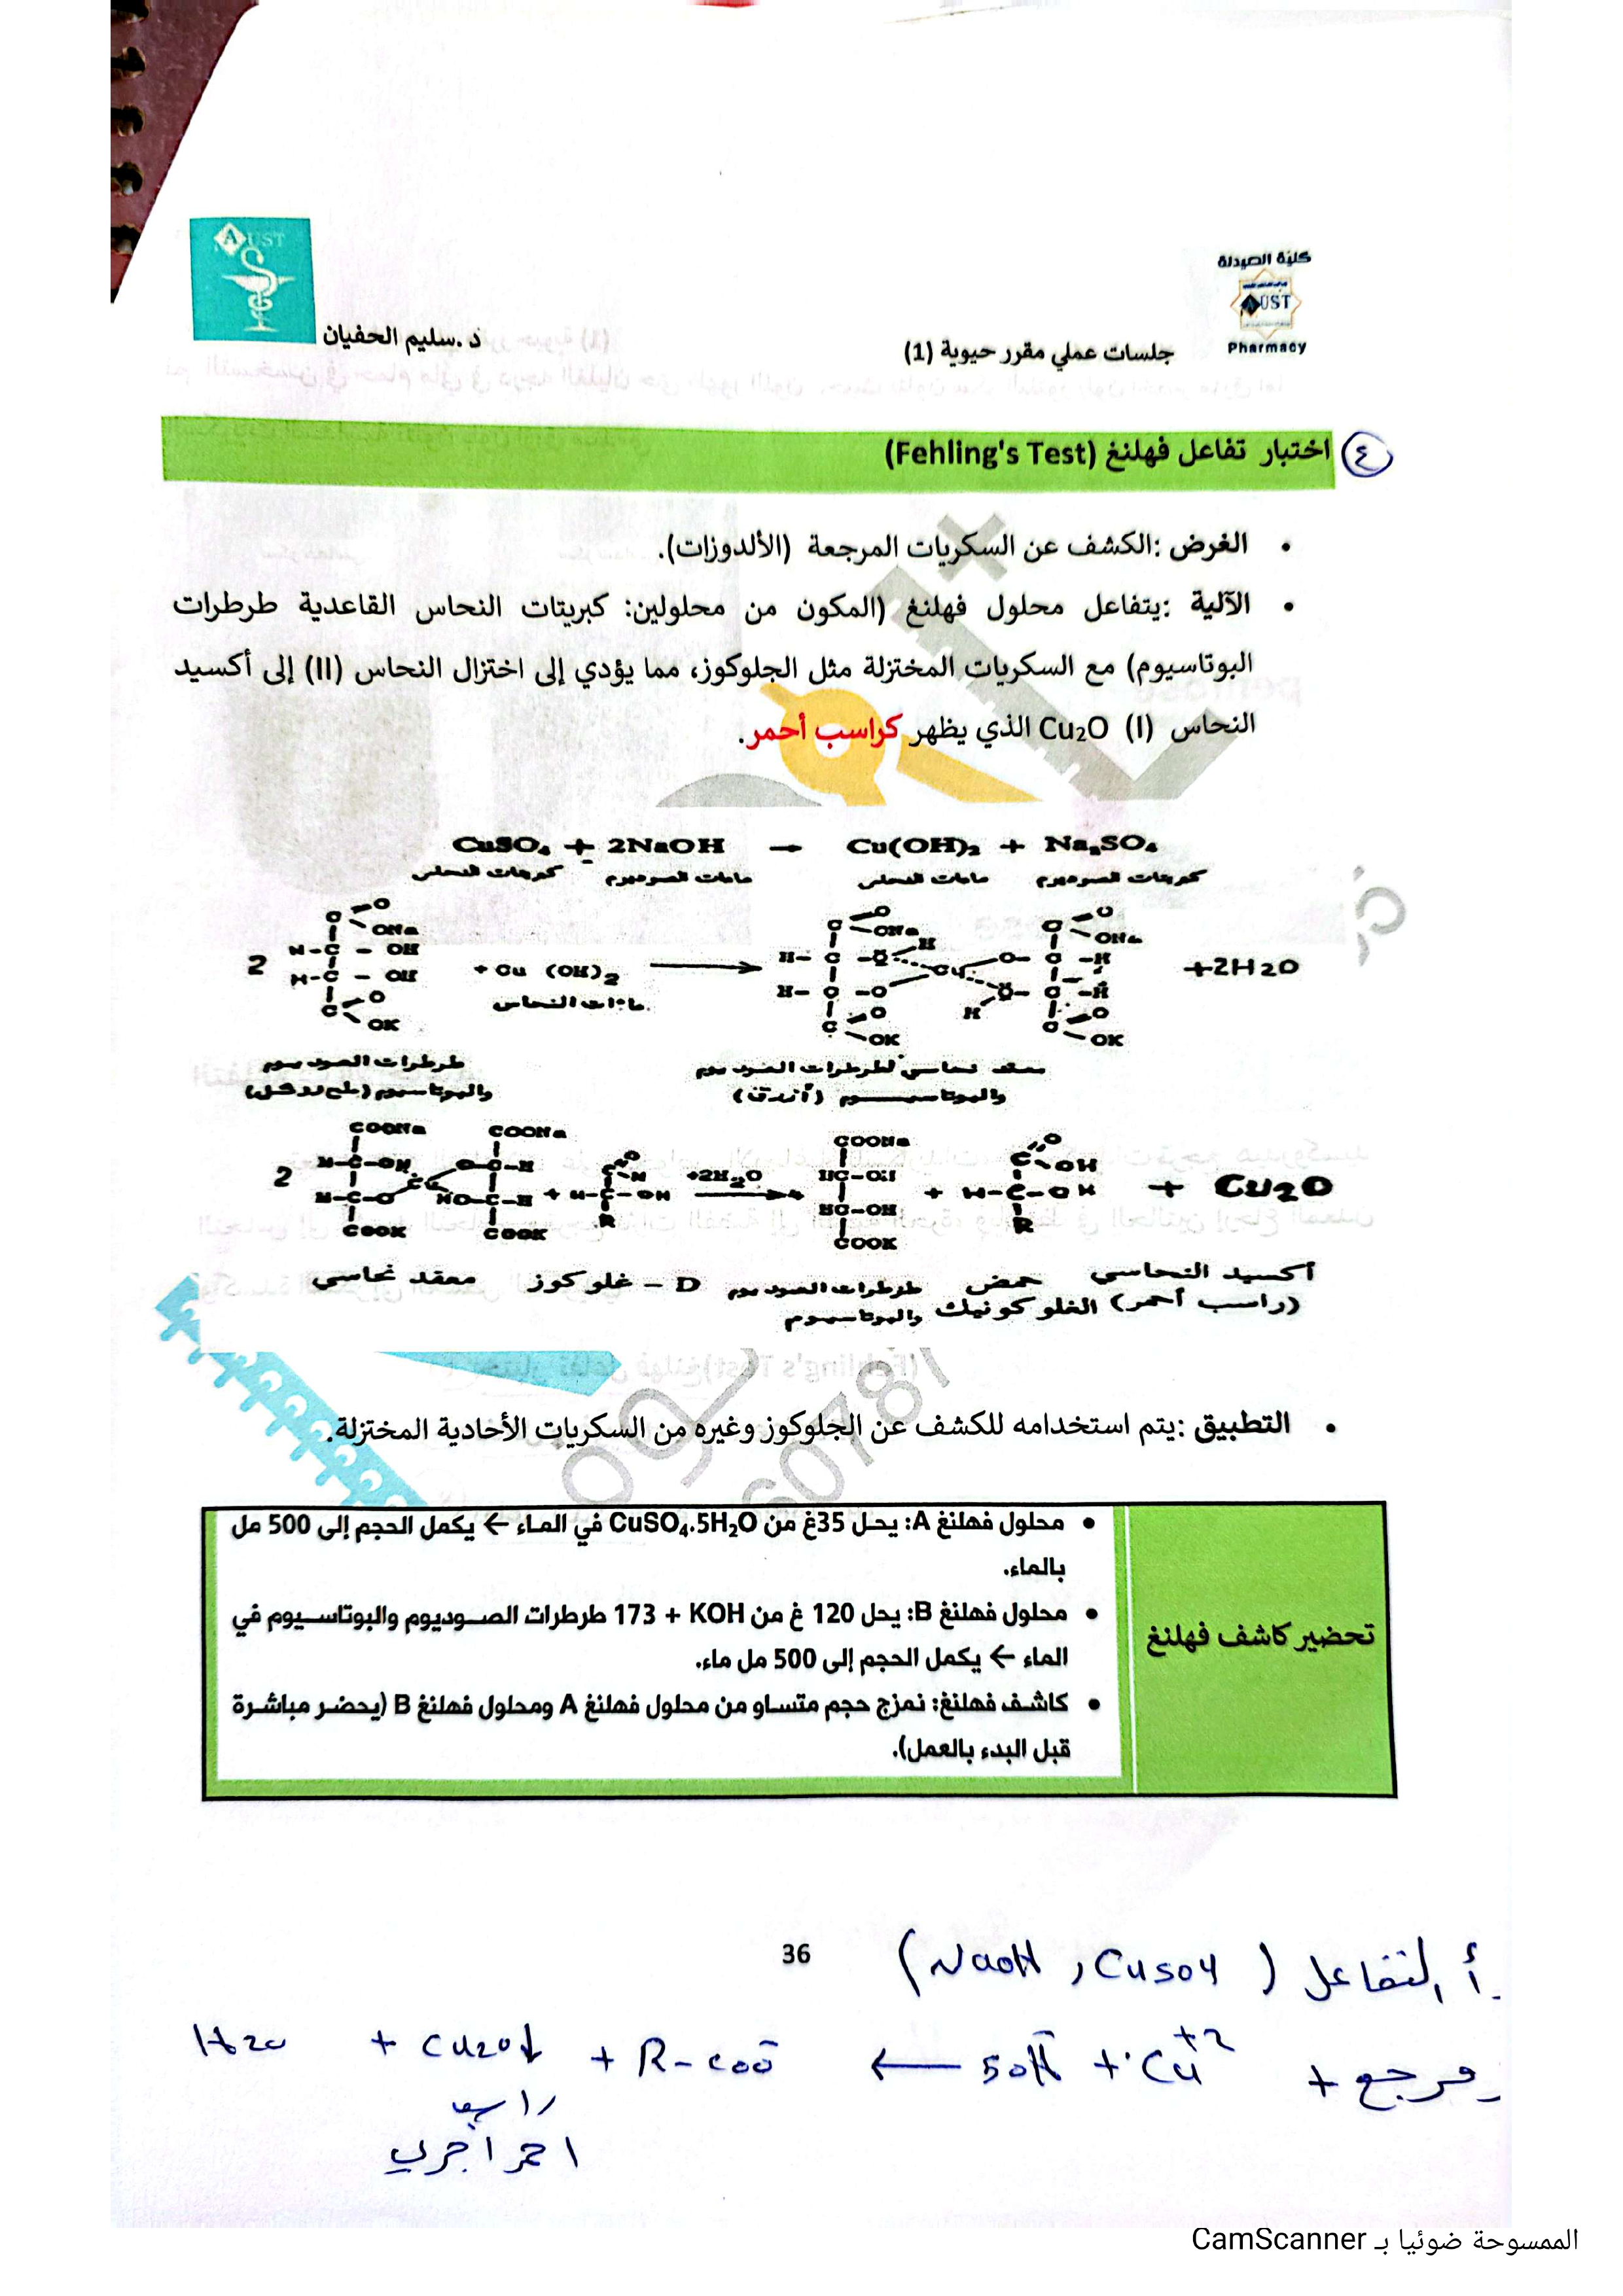 كلية الصيدلة
AUST
Pharmacy
AUST
جلسات عملي مقرر حيوية (1)
د .سليم الحفيان
٤ اختبار تفاعل فهلنغ (Fehling's Test)
• الغرض :الكشف عن السكريات المرجعة (الألدوزات).
• الآلية :يتفاعل محلول فهلنغ (المكون من محلولين: كبريتات النحاس القاعدية طرطرات
البوتاسيوم) مع السكريات المختزلة مثل الجلوكوز، مما يؤدي إلى اختزال النحاس (II) إلى أكسيد
النحاس (I) Cu₂O الذي يظهر كراسب أحمر.
CuSO₄ + 2NaOH → Cu(OH)₂ + Na₂SO₄
كبريتات النحاس ماءات الصوديوم ماءات النحاس كبريتات الصوديوم
2 + Cu (OH)₂ → +2H2O
ماءات النحاس
طرطرات الصوديوم
والبوتاسيوم
معقد نحاسي لطرطرات الصوديوم
والبوتاسيوم (أزرق)
COONa COONa COONa
2 + +2H₂O → 4 + + Cu2O
COOK COOK COOK
معقد نحاسي D – غلوكوز طرطرات الصوديوم والبوتاسيوم حمض الغلوكونيك أكسيد النحاسي
(راسب أحمر)
• التطبيق :يتم استخدامه للكشف عن الجلوكوز وغيره من السكريات الأحادية المختزلة.
تحضير كاشف فهلنغ
• محلول فهلنغ A: يحل 35غ من CuSO₄.5H₂O في الماء ← يكمل الحجم إلى 500 مل
بالماء.
• محلول فهلنغ B: يحل 120 غ من KOH + 173 طرطرات الصوديوم والبوتاسيوم في
الماء ← يكمل الحجم إلى 500 مل ماء.
• كاشف فهلنغ: نمزج حجم متساو من محلول فهلنغ A ومحلول فهلنغ B (يحضر مباشرة
قبل البدء بالعمل).
36
أ التفاعل (NaOH , CuSO4)
مرجع + Cu⁺² + 5OH⁻ ← R-COO⁻ + Cu2O↓ + H2O
راسب
احمر اجري
الممسوحة ضوئيا بـ CamScanner